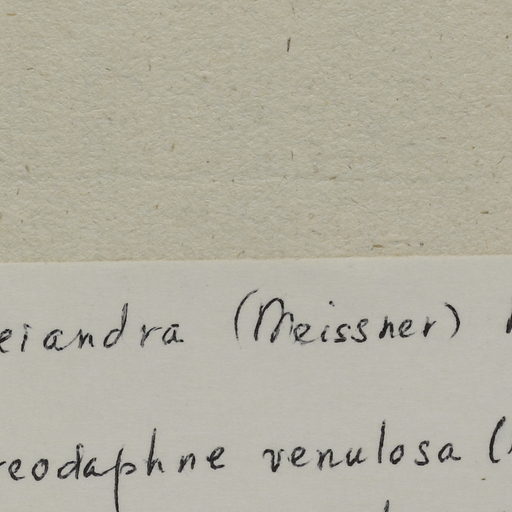 eiandra (Meissner)
reodaphne venulosa (